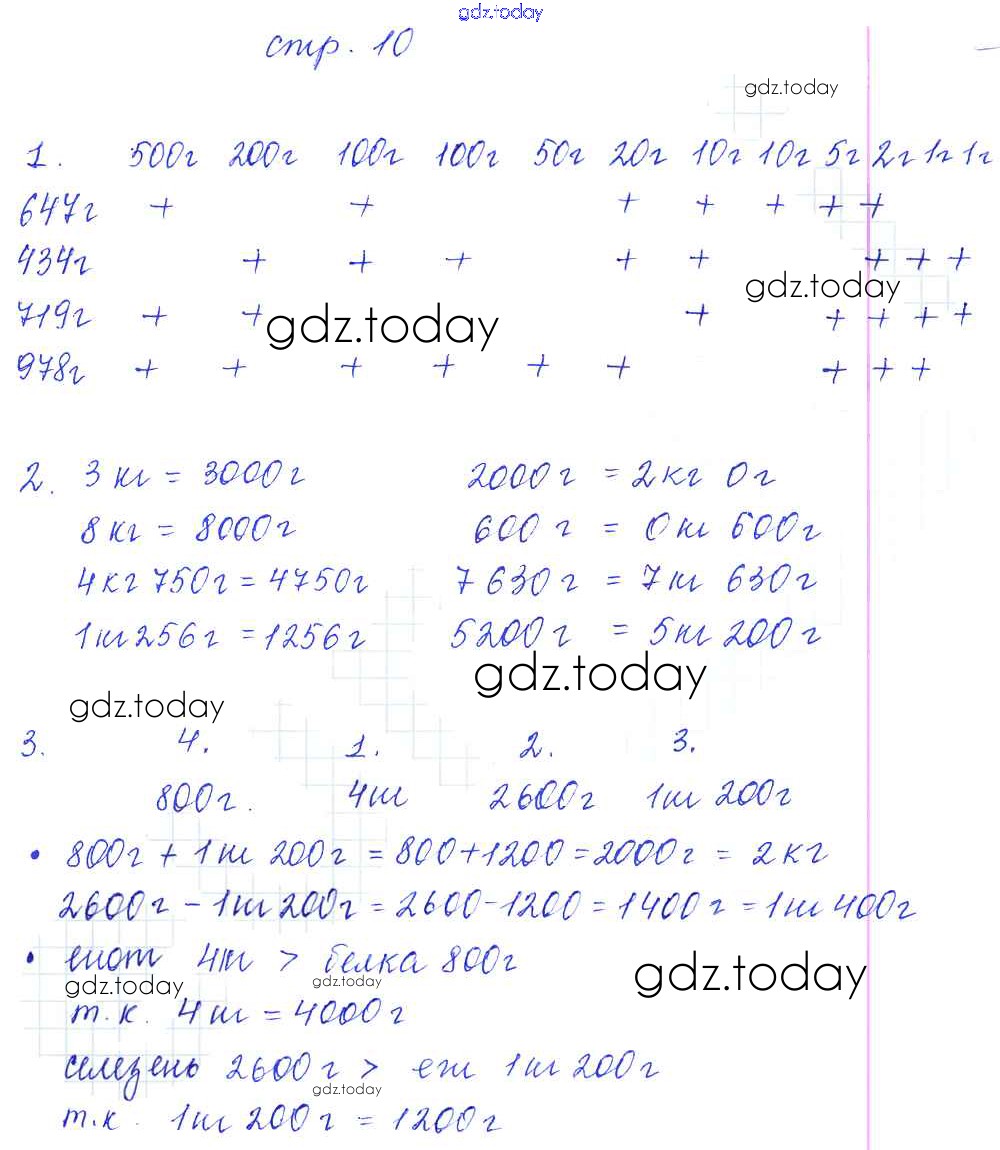 gdz.today
стр. 10
gdz.today
1. 500г 200г 100г 100г 50г 20г 10г 10г 5г 2г 1г 1г
647г + + + + + + +
434г + + + + + + + +
gdz.today
719г + + + + + + +
gdz.today
978г + + + + + + + + +
2. 3 кг = 3000г 2000г = 2кг 0г
8 кг = 8000г 600г = 0кг 600г
4кг 750г = 4750г 7630г = 7кг 630г
1кг 256г = 1256г 5200г = 5кг 200г
gdz.today
gdz.today
3. 4. 1. 2. 3.
800г. 4кг 2600г 1кг 200г
• 800г + 1кг 200г = 800+1200 = 2000г = 2кг
2600г - 1кг 200г = 2600-1200 = 1400г = 1кг 400г
• енот 4кг > белка 800г
gdz.today gdz.today gdz.today
т.к. 4кг = 4000г
селезень 2600г > еж 1кг 200г
gdz.today
т.к. 1кг 200г = 1200г